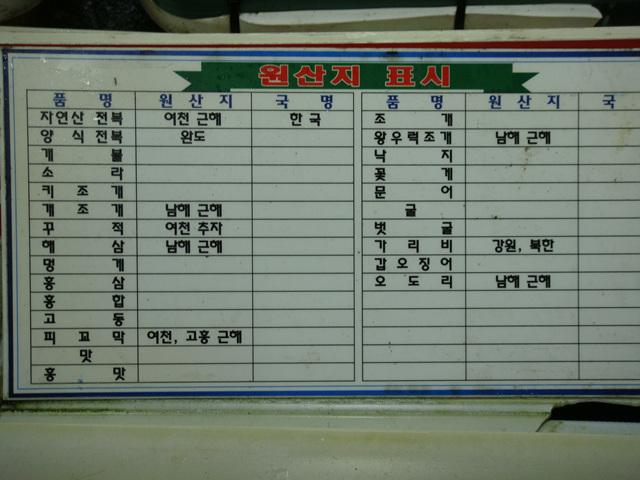 원산지 표시
품 명 원 산 지 국 명 품 명 원 산 지 국
자연산 전복 여천 근해 한 국 조 개
양 식 전복 완도 왕우럭조개 남해 근해
개 불 낙 지
소 라 꽃 게
키 조 개 문 어
개 조 개 남해 근해 굴
꾸 적 여천 추자 벗 굴
해 삼 남해 근해 가 리 비 강원, 북한
멍 게 갑 오 징 어
홍 삼 오 도 리 남해 근해
홍 합
고 동
피 꼬 막 여천, 고흥 근해
맛
홍 맛